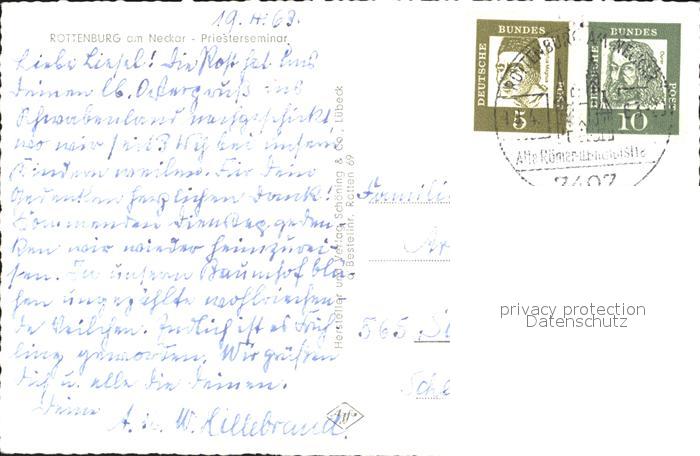 19.4.63.
ROTTENBURG am Neckar - Priesterseminar
Liebe Liesel! Die Post hat uns
Deinen lb. Ostergruß ins
Schwabenland nachgeschickt,
wo wir seit 3 Wch bei unsern
Kindern weilen. Für Dein
Gedenken herzlichen Dank!
Kommenden Dienstag geden-
ken wir wieder heimzurei-
sen. In unserm Baumhof blü-
hen ungezählte wohlriechen-
de Veilchen. Endlich ist es Früh-
ling geworden. Wir grüßen
Dich u. alle die Deinen.
Deine
A. u. W. Hillebrand.
Hersteller und Verlag Schöning & Co., Lübeck
Bestellnr. Rotten 69
Familie
565
DEUTSCHE BUNDESPOST
5
DEUTSCHE BUNDESPOST
10
ROTTENBURG AM NECKAR
Alte Römer- u. Bischofsstadt
7407
privacy protection
Datenschutz